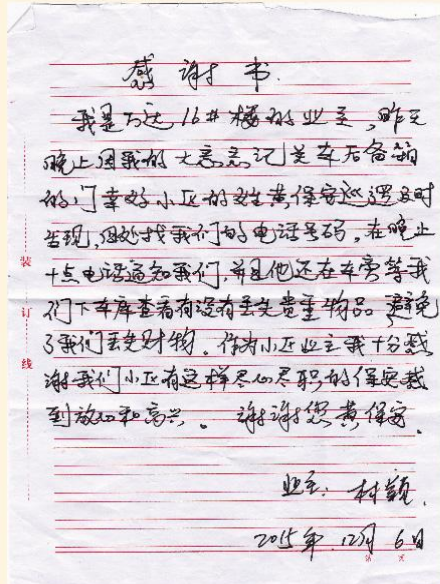 感谢书
我是万达16#楼的业主,昨天
晚上因我的大意忘记关车后备箱
的门幸好小区的姓黄保安巡逻及时
发现,四处找我们的电话号码,在晚上
十点电话通知我们,并且他还在车旁等我
们下车库查看有没有丢失贵重物品 避免
了我们丢失财物。作为小区业主我十分感
谢我们小区有这样尽心尽职的保安感
到放心和高兴。 谢谢您黄保安。
业主: 村颖
2015年12月6日
装
订
线